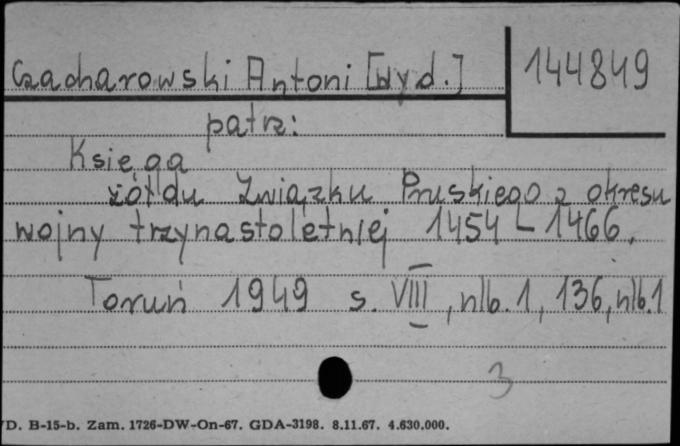 Czacharowski Antoni [Wyd.]
144849
patrz:
Księga
żółdu Związku Pruskiego z okresu
wojny trzynastoletniej 1454 - 1466.
Toruń 1949 s. VIII, nlb. 1, 136, nlb. 1
3
D. B-15-b. Zam. 1726-DW-On-67. GDA-3198. 8.11.67. 4.630.000.